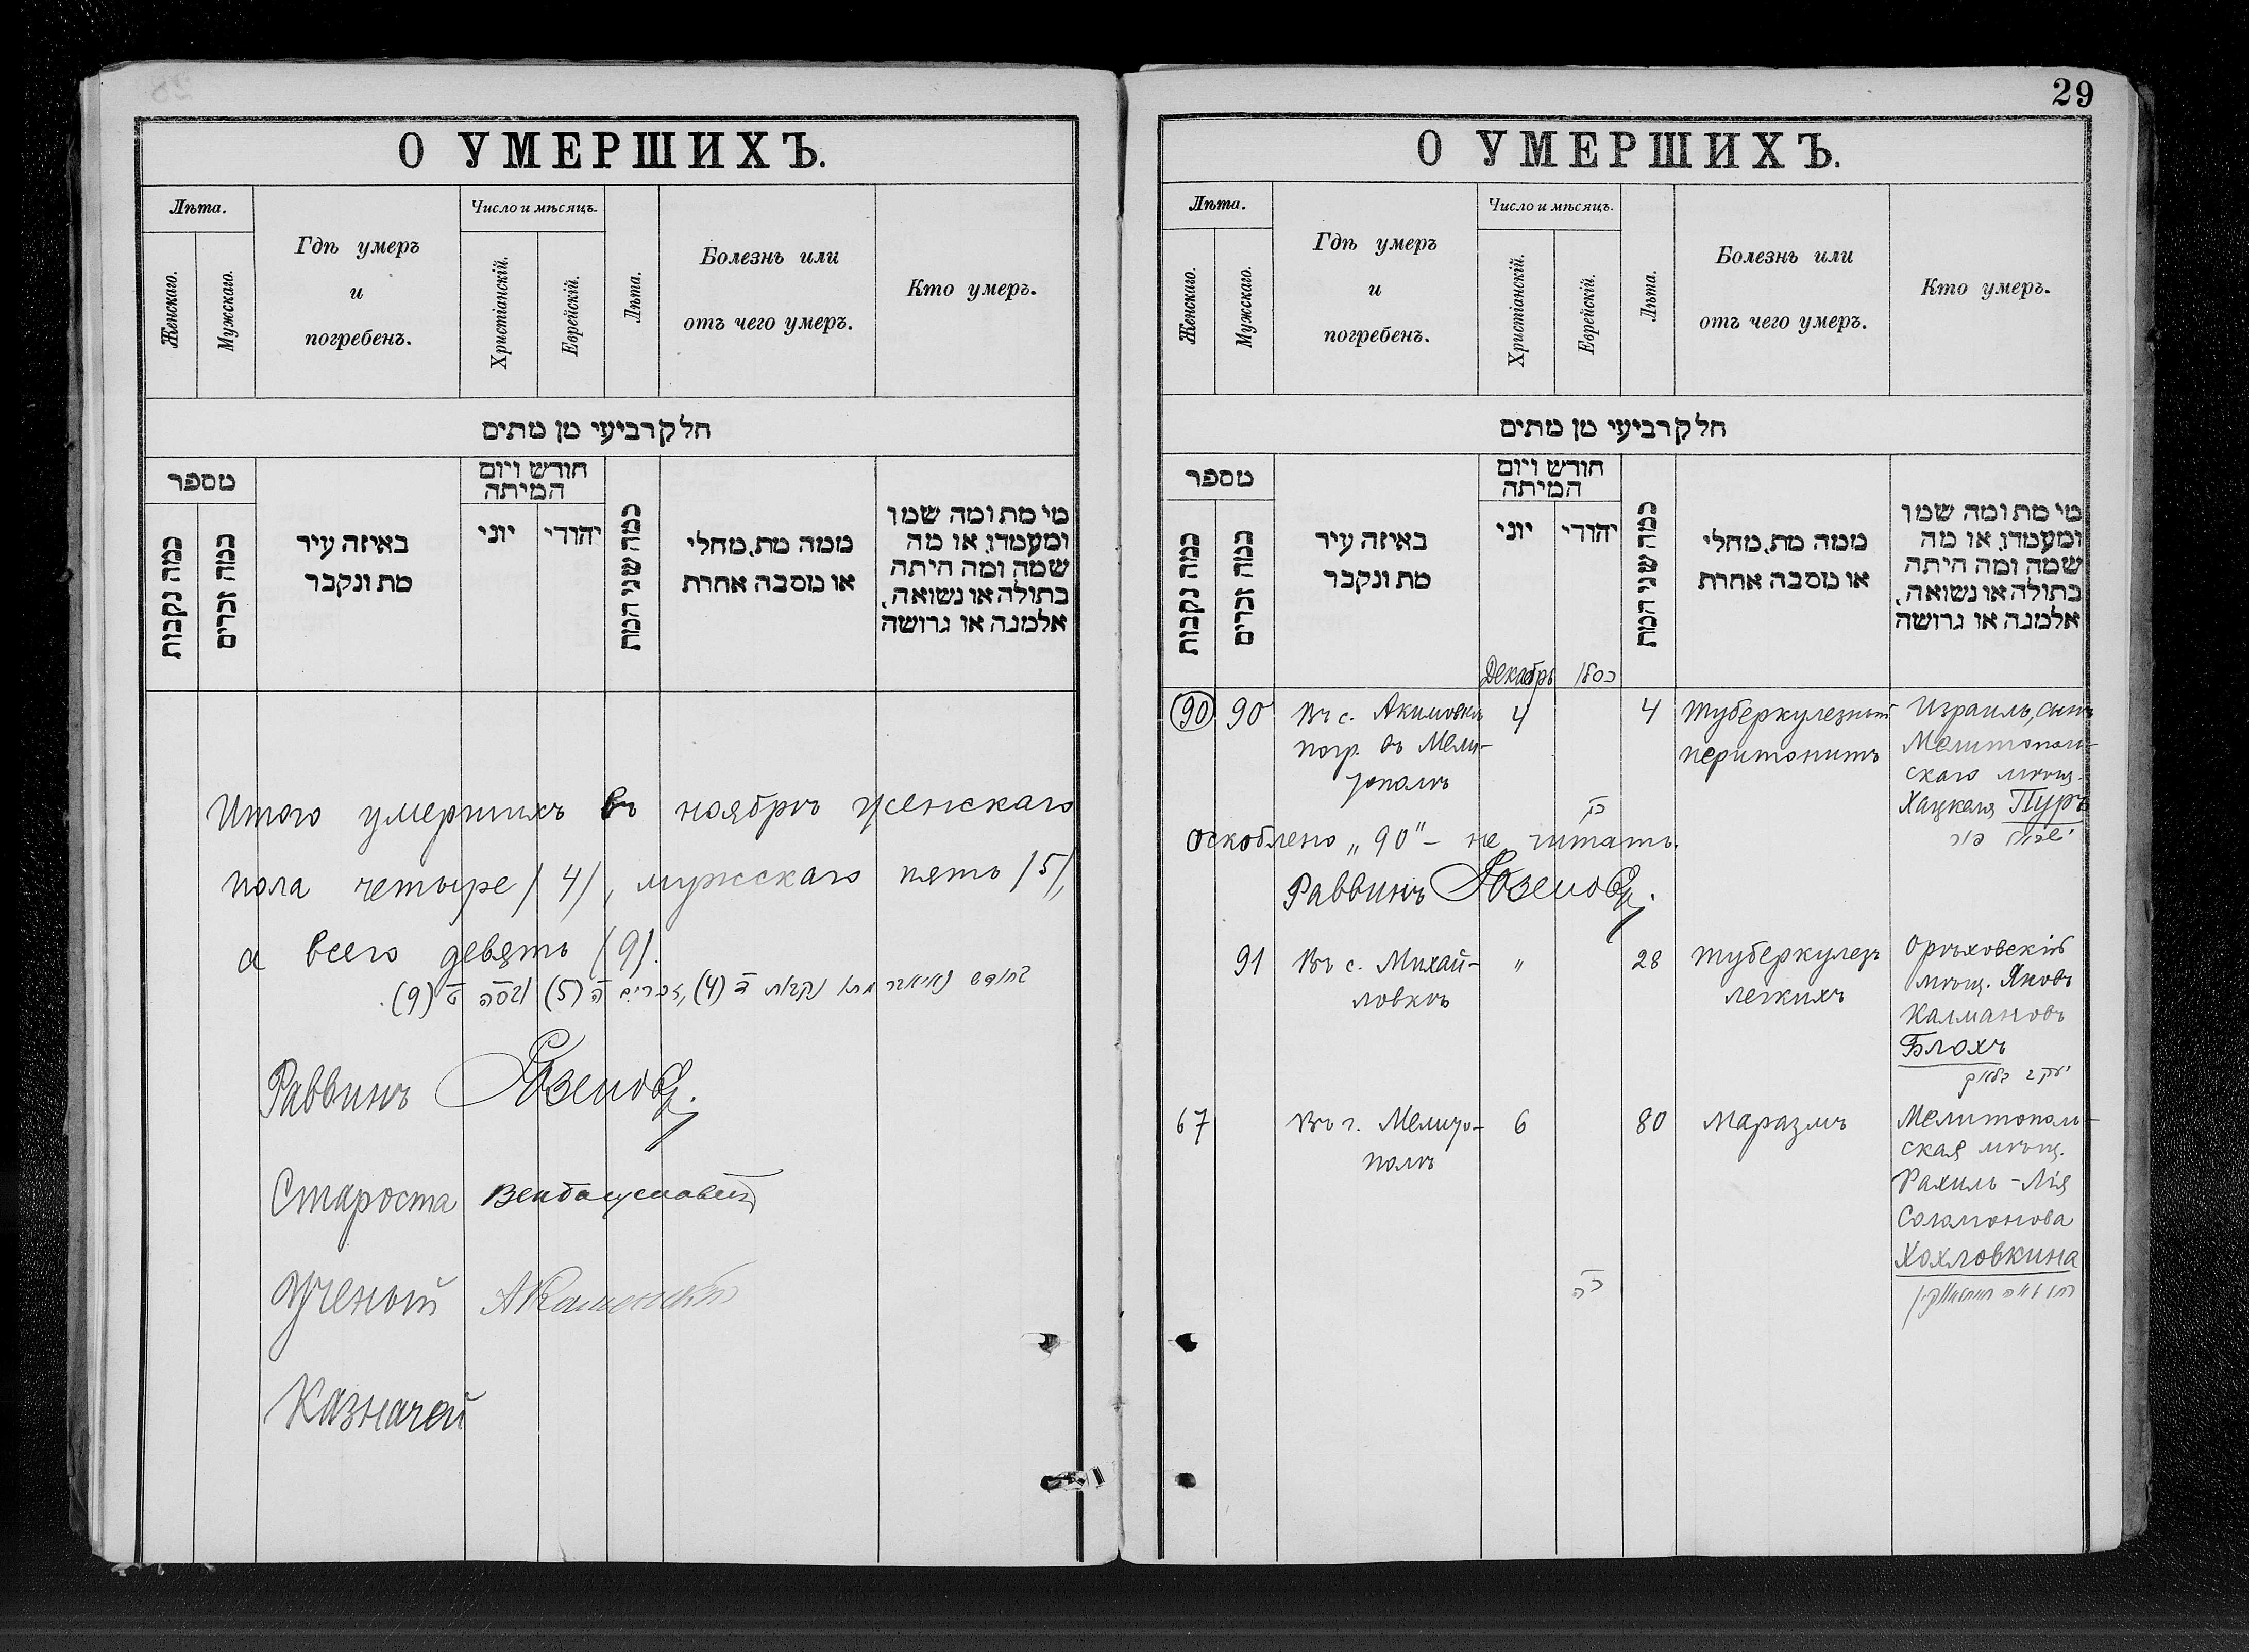 О УМЕРШИХЪ.
Лѣта.
Женскаго.
Мужскаго.
Гдѣ умеръ
и
погребенъ.
Число и мѣсяцъ.
Христіанскій.
Еврейскій.
Лѣта.
Болезнь или
отъ чего умеръ.
Кто умеръ.
חלק רביעי מן מתים
מספר
כמה נקבות
כמה זכרים
באיזה עיר
מת ונקבר
חודש ויום
המיתה
יוני
יהודי
כמה שני המת
ממה מת, מחלי
או מסבה אחרת
מי מת ומה שמו
ומעמדו, או מה
שמה ומה היתה
בתולה או נשואה,
אלמנה או גרושה
Итого умершихъ въ ноябрѣ женскаго
пола четыре /4/, мужскаго пять /5/,
а всего девять /9/.
נקבות ד (4), זכרים ה (5) ט (9).
Раввинъ
Староста
Ученый
Казначей
29
О УМЕРШИХЪ.
Лѣта.
Женскаго.
Мужскаго.
Гдѣ умеръ
и
погребенъ.
Число и мѣсяцъ.
Христіанскій.
Еврейскій.
Лѣта.
Болезнь или
отъ чего умеръ.
Кто умеръ.
חלק רביעי מן מתים
מספר
כמה נקבות
כמה זכרים
באיזה עיר
מת ונקבר
חודש ויום
המיתה
יוני
יהודי
כמה שני המת
ממה מת, מחלי
או מסבה אחרת
מי מת ומה שמו
ומעמדו, או מה
שמה ומה היתה
בתולה או נשואה,
אלמנה או גרושה
Декабрь כסלו
90 90 Въ с. Акимовкѣ 4 4 Туберкулезный Израиль, сынъ
погр. въ Мели- перитонитъ Мелитополь-
тополѣ скаго мѣщ.
Хацкеля Пуръ
ישראל פור
Оскоблено „90" – не читать.
Раввинъ
91 Въ с. Михай- „ 28 Туберкулезъ Орѣховскій
ловкѣ легкихъ мѣщ. Яковъ
Калмановъ
Блохъ
יעקב בלאך
67 Въ г. Мелито- 6 80 Маразмъ Мелитополь-
полѣ ская мѣщ.
Рахиль-Лія
Соломонова
Хохловкина
כה